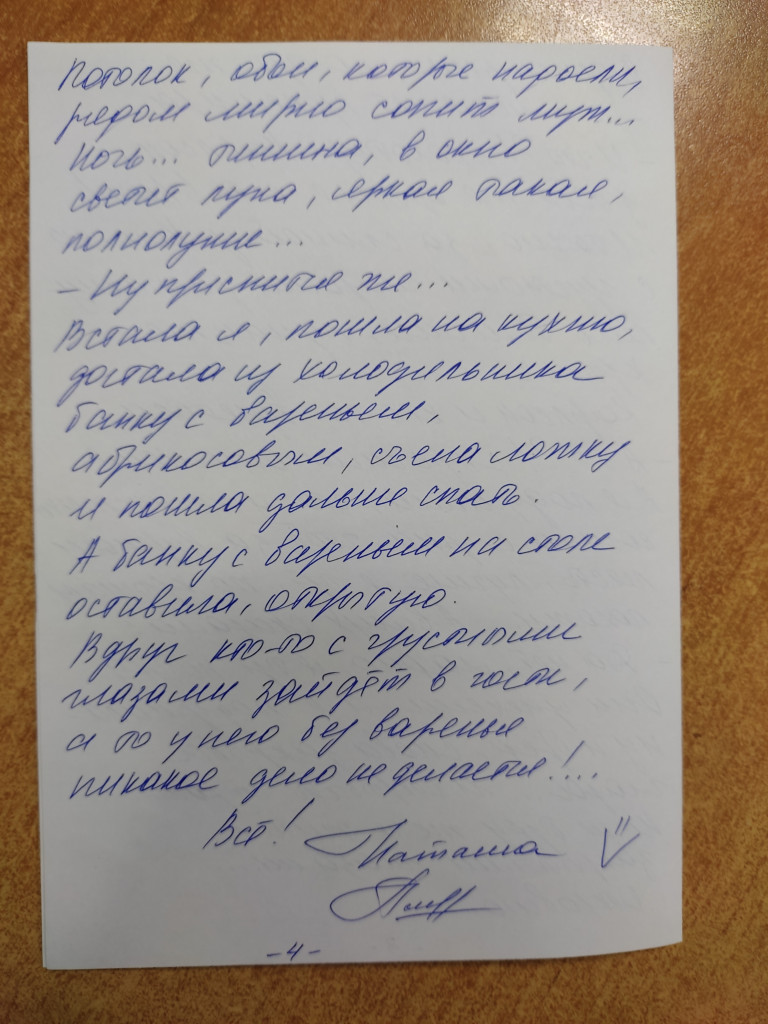 Потолок, обои, которые надоели,
рядом мирно сопит муж...
Ночь... тишина, в окно
светит луна, яркая такая,
полнолуние...
– Ну приснится же...
Встала я, пошла на кухню,
достала из холодильника
банку с вареньем,
абрикосовым, съела ложку
и пошла дальше спать.
А банку с вареньем на столе
оставила, открытую.
Вдруг кто-то с грустными
глазами зайдёт в гости,
а то у него без варенья
никакое дело не делается!...
Всё! Наташа
-4-